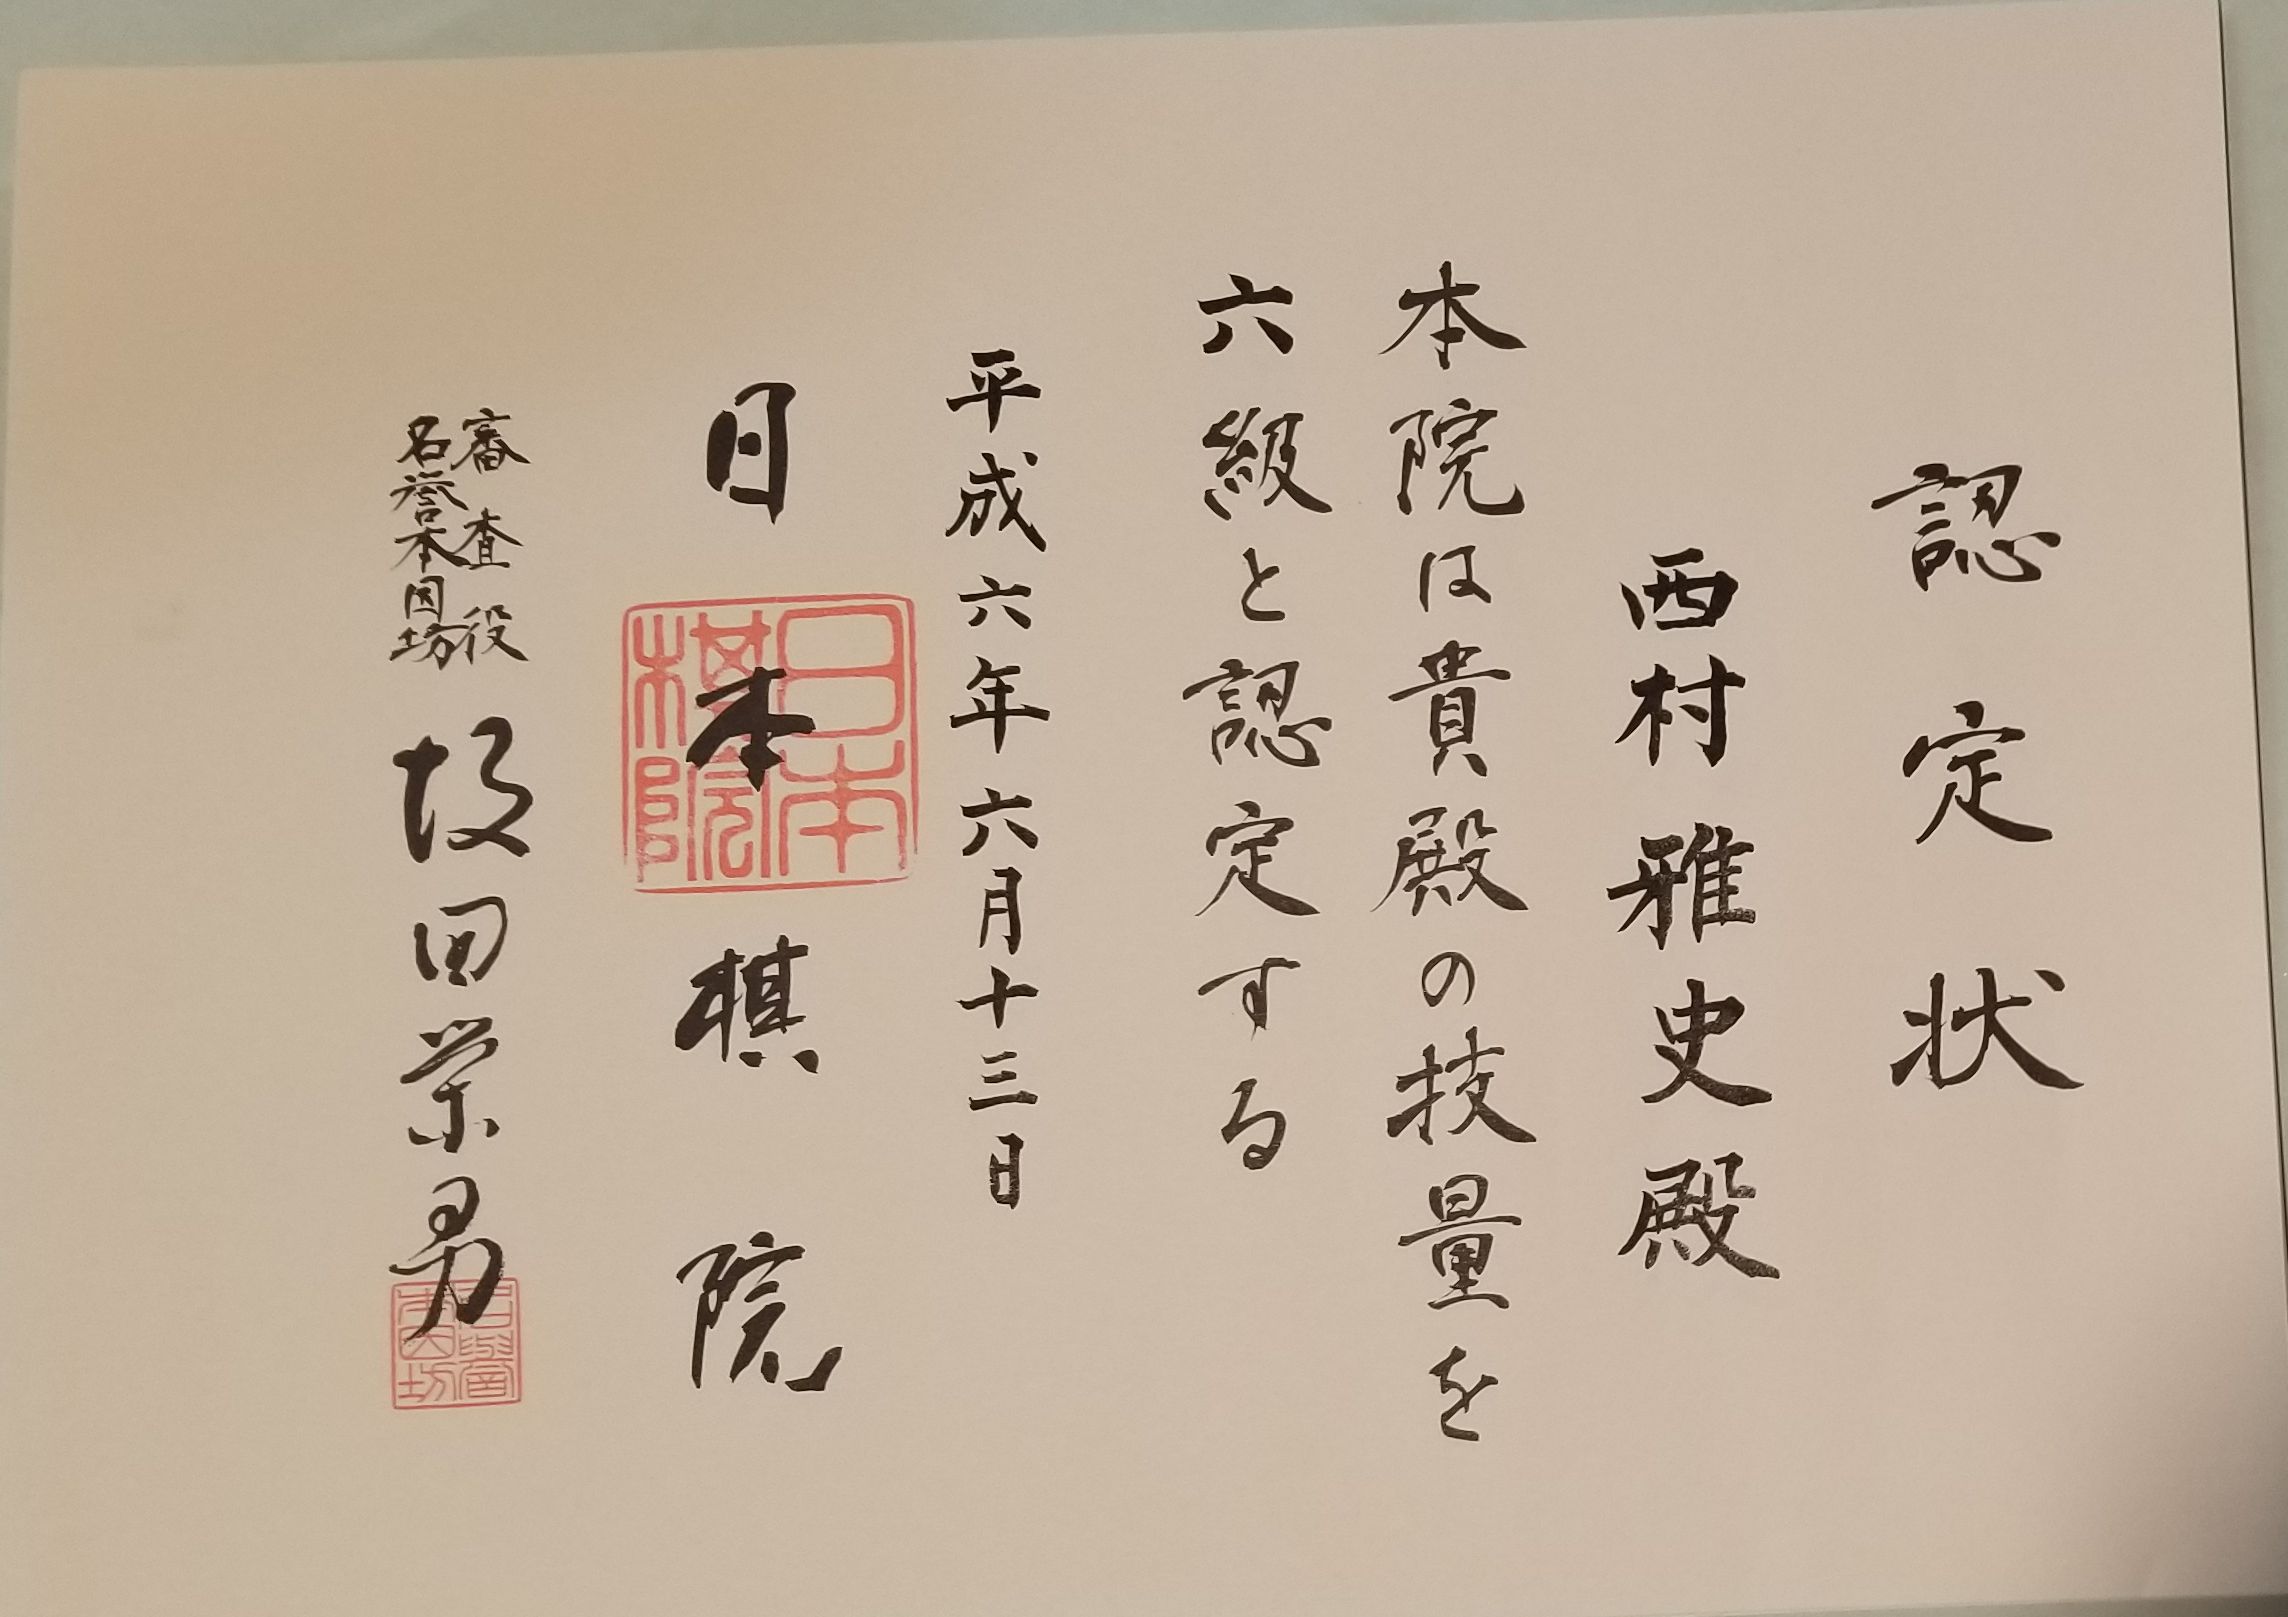 認定状
西村雅史殿
本院は貴殿の技量を
六級と認定する
平成六年六月十三日
日本棋院
日本
棋院
審査役
名誉本因坊
坂田栄男
名誉
本因坊